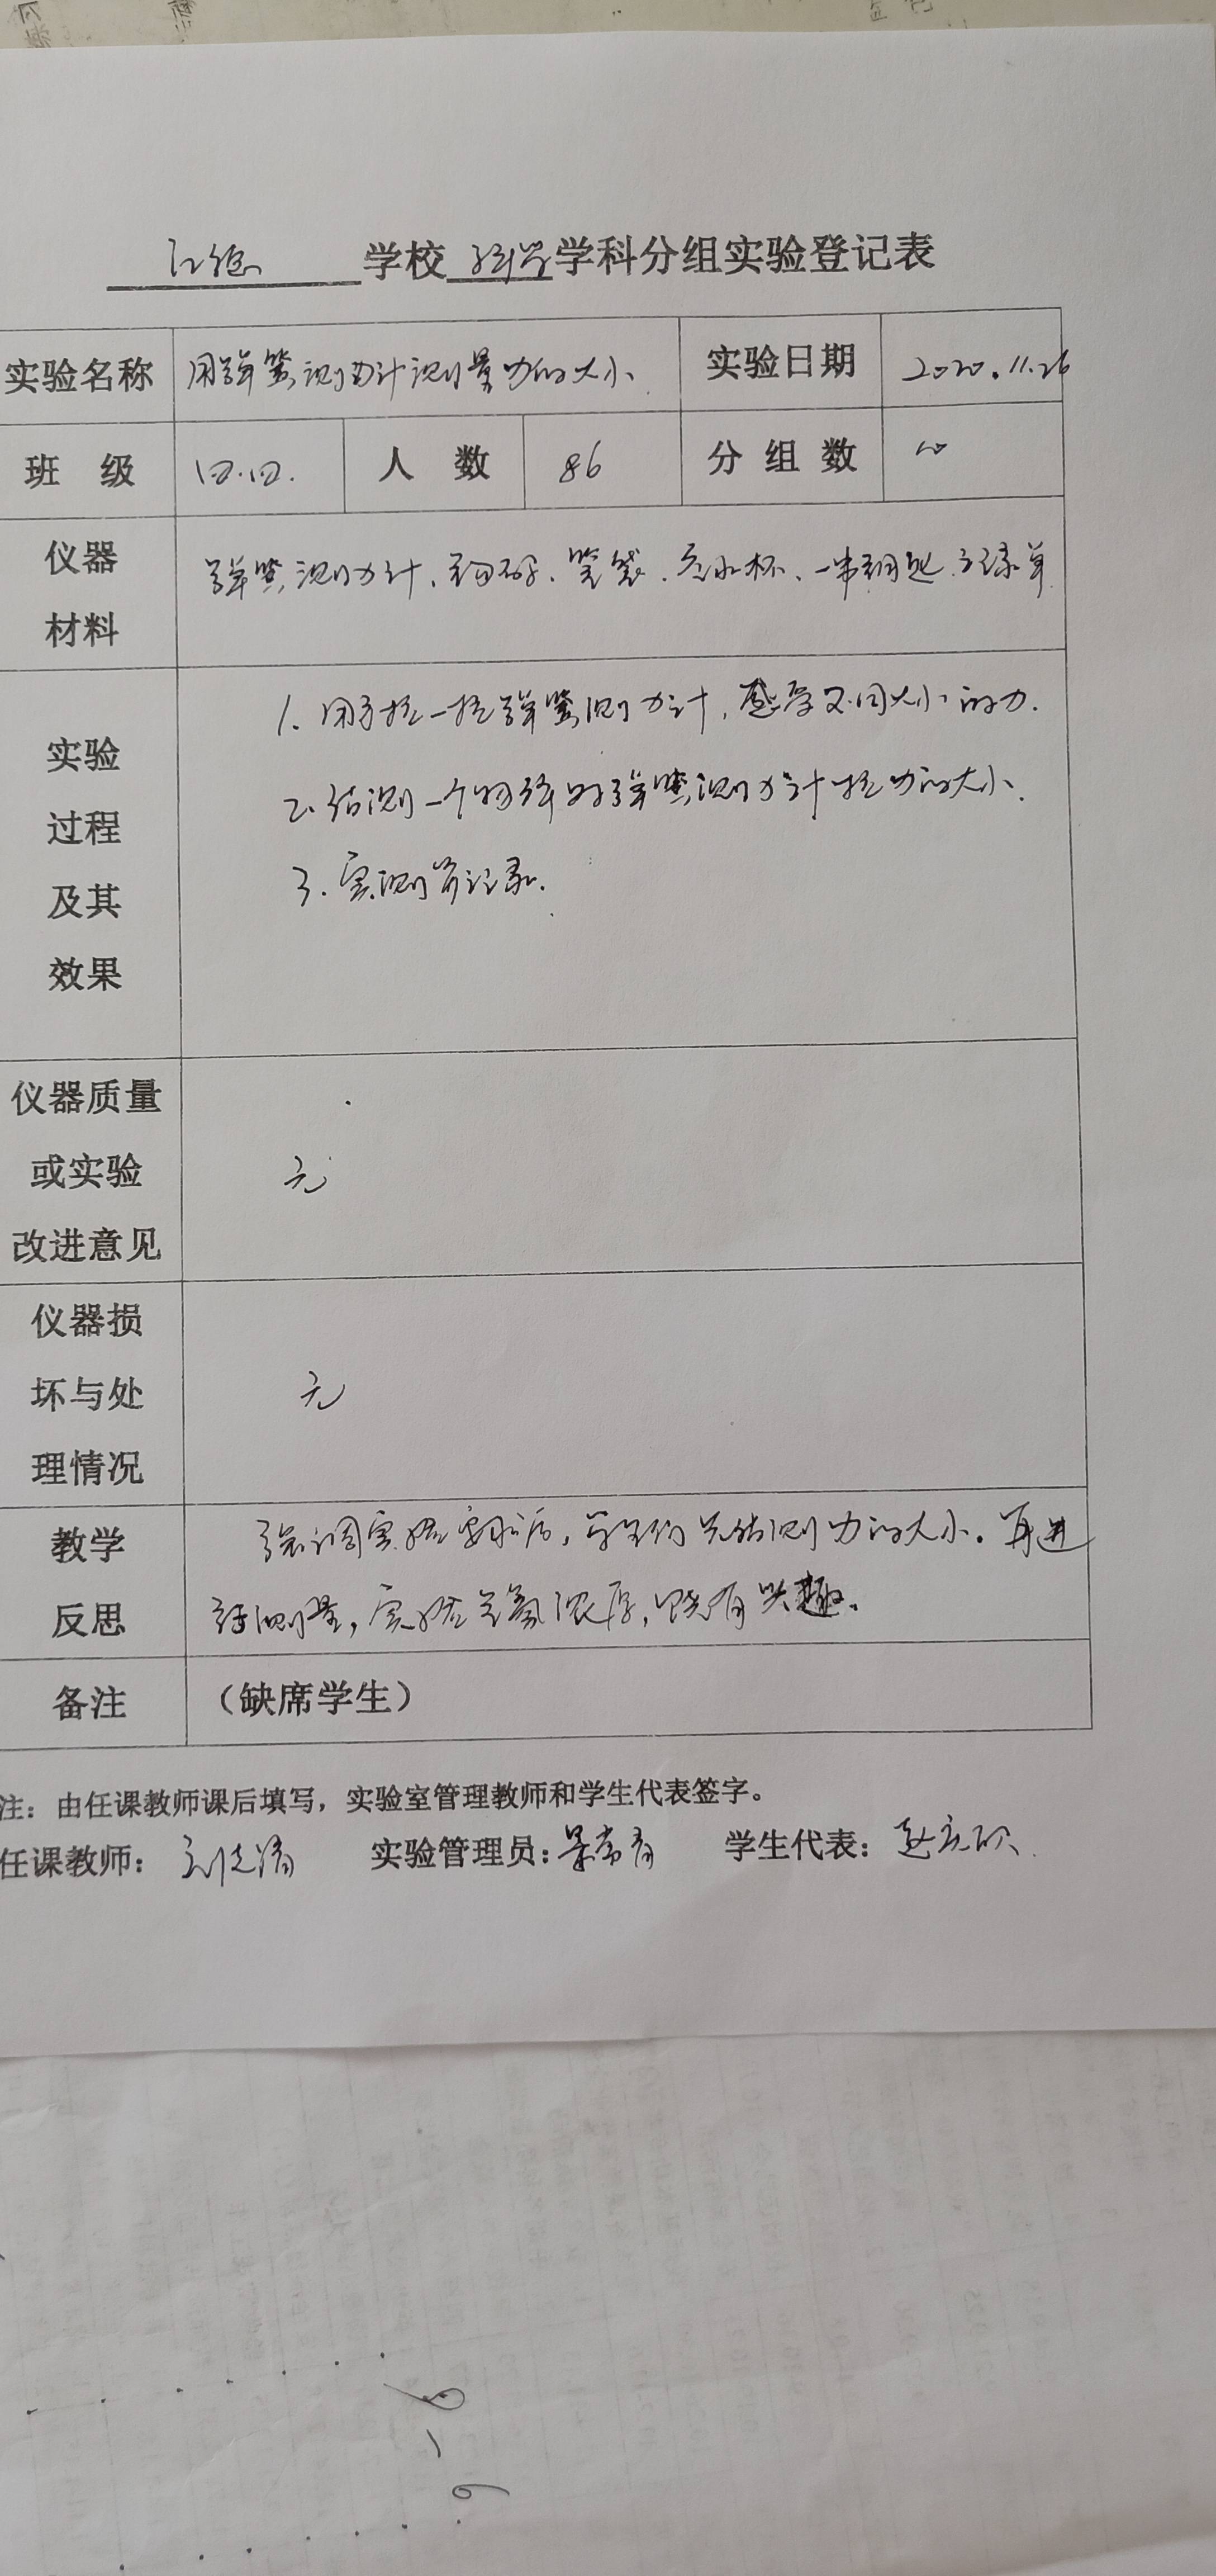 学校 科学 学科分组实验登记表
实验名称 用弹簧测力计测量力的大小 实验日期 2020.11.26
班 级 四.四. 人 数 86 分组数
仪器
材料
弹簧测力计、钩码、笔袋、水杯、一串钥匙、记录单
实验
过程
及其
效果
1. 用手拉一拉弹簧测力计,感受不同大小的力.
2. 估测一个物体对弹簧测力计拉力的大小.
3. 实测并记录.
仪器质量
或实验
改进意见
无
仪器损
坏与处
理情况
无
教学
反思
强调实验要求后,学生们先估测力的大小。再进
行测量,实验气氛浓厚,饶有兴趣。
备注 (缺席学生)
注:由任课教师课后填写,实验室管理教师和学生代表签字。
任课教师: 实验管理员: 学生代表: